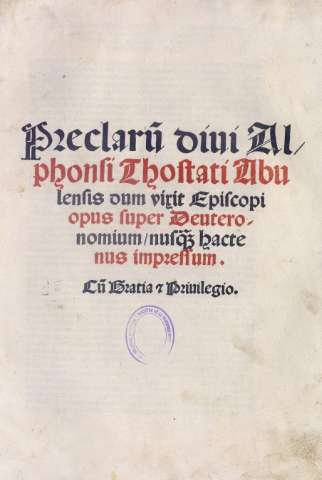 Preclarū diui Al/
phonsi Thostati Abu
lensis dum vixit Episcopi
opus super Deutero-
nomium/nusq̄ȝ hacte
nus impressum.
Cū Gratia ⁊ Priuilegio.